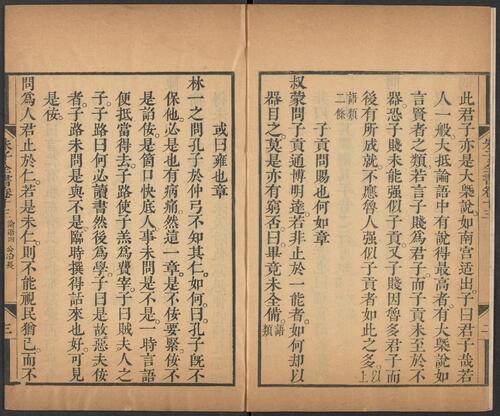 此君子亦是大槩說如南宮适出子曰君子哉若
人一般大抵論語中有說得最高者有大槩說如
言賢者之類若言子賤為君子而子貢未至於不
器恐子賤未能強似子貢又子賤因魯多君子而
後有所成就不應魯人強似子貢者如此之多以上
語類二條
子貢問賜也何如章
叔蒙問子貢通博明達若非止於一能者如何却以
器目之莫是亦有窮否曰畢竟未全備語類
或曰雍也章
林一之問孔子於仲弓不知其仁如何曰孔子既不
保他必是也有病痛然這一章是不佞要緊佞不
是諂佞是箇口快底人事未問是不是一時言語
便抵當得去子路使子羔為費宰子曰賊夫人之
子子路曰何必讀書然後為學子曰是故惡夫佞
者子路未問是與不是臨時撰得話來也好可見
是佞
問為人君止於仁若是未仁則不能視民猶己而不
朱子全書卷十三
論語四 公冶長
三
朱子全書卷十三
二